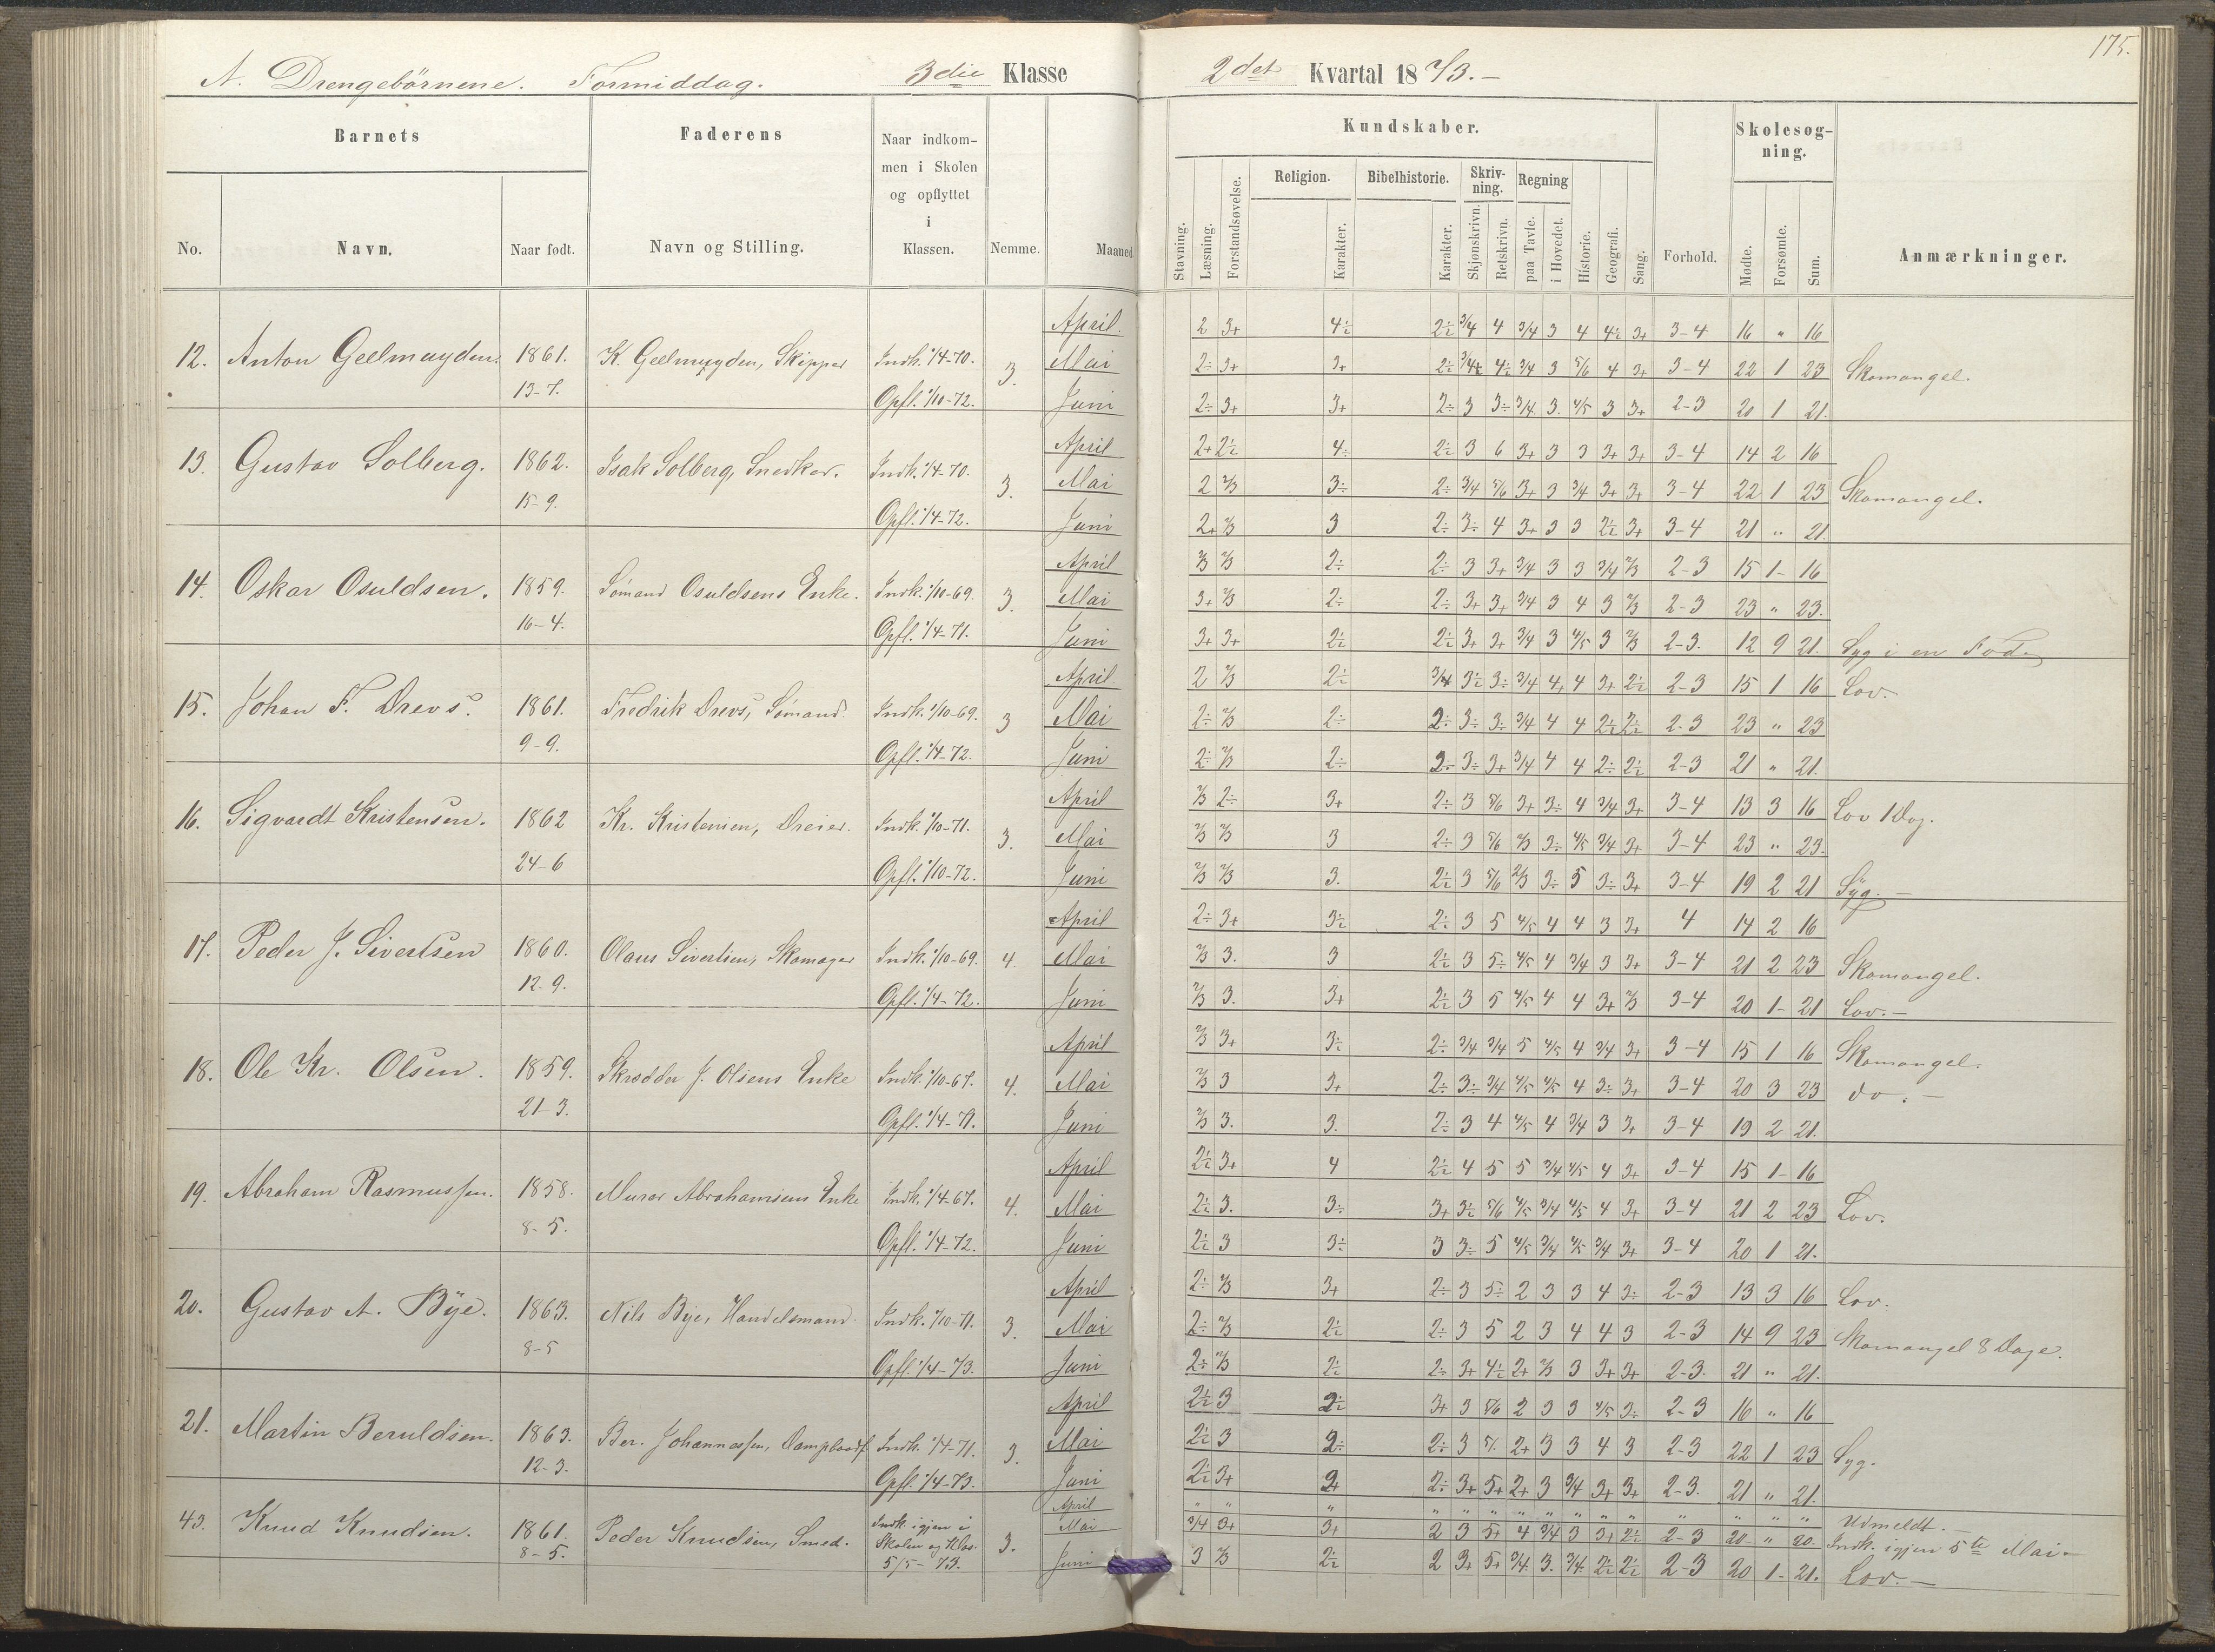 175.
A. Drengebörnene. Formiddag. 3die Klasse 2det Kvartal 1873.-
Barnets Faderens Naar indkommen i Skolen og opflyttet i Klassen. Nemme. Maaned
No. Navn. Naar født. Navn og Stilling.
Kundskaber. Skolesøgning.
Stavning. Læsning. Forstandsøvelse. Religion. Karakter. Bibelhistorie. Karakter. Skrivning. Skjønskrivn. Retskrivn. Regning paa Tavle. i Hovedet. Historie. Geografi. Sang. Forhold. Mødte. Forsømte. Sum. Anmærkninger.
12. Anton Geelmuyden. 1861. 13-7. K. Geelmuyden, Skipper Indk. 1/4-70. Opfl. 1/10-72. 3.
April 2 3+ 4÷ 2÷ 3/4 4 3/4 3 4 4÷ 3+ 3-4 16 " 16
Mai 2÷ 3+ 3+ 2÷ 4÷ 3/4 3 5/6 4 3+ 3-4 22 1 23 Skomangel.
Juni 2÷ 3+ 3+ 2÷ 3 3÷ 3/4 3. 4/5 3 3+ 2-3 20 1 21.
13. Gustav Solberg. 1862. 15-9. Isak Solberg, Snedker. Indk. 1/4-70. Opfl. 1/4-72. 3.
April 2+ 2÷ 4÷ 2÷ 3 6 3+ 3 3 3+ 3+ 3-4 14 2 16
Mai 2 2/3 3÷ 2÷ 3/4 5/6 3+ 3 3/4 3+ 3+ 3-4 22 1 23 Skomangel.
Juni 2+ 2/3 3 2÷ 3÷ 4 3+ 3 3 2÷ 3+ 3-4 21 " 21.
14. Oskar Osuldsen. 1859. 16-4. Sömand Osuldsens Enke. Indk. 1/10-69. Opfl. 1/4-71. 3.
April 2/3 2/3 2÷ 2÷ 3 3+ 3/4 3 3 3/4 2/3 2-3 15 1- 16
Mai 3+ 2/3 2÷ 2÷ 3+ 3+ 3/4 3 4 3 2/3 2-3 23 " 23.
Juni 3+ 3+ 2÷ 2÷ 3+ 3+ 3/4 3 4/5 3 2/3 2-3. 12 9 21. Syg i en Fod.
15. Johan F. Drevs. 1861. 9-9. Fredrik Drevs, Sömand. Indk. 1/10-69. Opfl. 1/4-72. 3
April 2 2/3 2÷ 3/4 3÷ 3÷ 3/4 4+ 4 3+ 2÷ 2-3 15 1 16 Lov.-
Mai 2÷ 2/3 2÷ 2÷ 3÷ 3÷ 3/4 4 4 2÷ 2÷ 2-3 23 " 23
Juni 2÷ 2/3 2÷ 2÷ 3÷ 3+ 3/4 4 4 2÷ 2÷ 2-3 21 " 21.
16. Sigvardt Kristensen. 1862 24-6 Kr. Kristensen, Dreier. Indk. 1/10-71. Opfl. 1/10-72. 3.
April 2/3 2÷ 3+ 2÷ 3 5/6 3+ 3÷ 4 3/4 3+ 3-4 13 3 16 Lov 1 Dag.
Mai 2/3 2/3 3 2÷ 3 5/6 2/3 3÷ 4/5 3/4 3+ 3-4 23 " 23.
Juni 2/3 2/3 3. 2÷ 3 5/6 2/3 3÷ 5 3÷ 3+ 3-4 19 2 21 Syg.-
17. Peder J. Sivertsen 1860. 12-9. Olaus Sivertsen, Skomager Indk. 1/10-69. Opfl. 1/4-72. 4.
April 2÷ 3+ 3÷ 2÷ 3 5 4/5 4 4 3 3+ 4 14 2 16
Mai 2/3 3. 3 2÷ 3 5÷ 4/5 4 3/4 3 3+ 3-4 21 2 23 Skomangel.
Juni 2/3 3. 3+ 2÷ 3 5 4/5 4 4 3+ 2/3 3-4 20 1- 21 Lov.-
18. Ole Kr. Olsen. 1859. 21-3. Skrædder J. Olsens Enke Indk. 1/10-67. Opfl. 1/4-71. 4.
April 2/3 3+ 3÷ 2÷ 3/4 3/4 5 4/5 4 3/4 3+ 3-4 15 1 16 Skomangel.
Mai 2/3 3 3+ 2÷ 3÷ 3/4 4/5 4/5 4 3÷ 3+ 3-4 20 3 23 do.-
Juni 2/3 3. 3. 2÷ 3 4 4/5 4 3/4 3 3+ 3-4 19 2 21.
19. Abraham Rasmussen. 1858. 8-5. Murer Abrahamsens Enke Indk. 1/4-67. Opfl. 1/4-72. 4.
April 2÷ 3+ 4 2÷ 4 5 5 3/4 4/5 4 3+ 3-4 15 1- 16
Mai 2÷ 3. 3÷ 3+ 3÷ 5/6 4/5 3/4 4/5 4 3+ 3-4 21 2 23 Lov.
Juni 2÷ 3 3÷ 3 3÷ 5 4/5 3/4 4/5 3/4 3+ 3-4 20 1 21.
20. Gustav A. Bÿe. 1863. 8-5 Nils Bye, Handelsmand. Indk. 1/10-71. Opfl. 1/4-73. 3.
April 2÷ 2/3 3+ 2÷ 3 5÷ 2 3 3 4 3÷ 2-3 13 3 16 Lov.
Mai 2÷ 2/3 2÷ 2÷ 3 5 2 3 4 4 3 2-3 14 9 23 Skomangel 8 Dage.
Juni 2÷ 2/3 2÷ 2÷ 3+ 4÷ 2+ 2/3 3 3+ 3+ 2-3. 21 " 21.
21. Martin Beruldsen. 1863. 12-3. Ber. Johannessen, Indk. 1/4-71. Opfl. 1/4-73. 3.
April 2÷ 3 2÷ 3+ 3 5/6 2 3 3 4/5 3÷ 2-3 16 " 16
Mai 2÷ 3 2÷ 2÷ 3 2+ 3 3 4 3 2-3 22 1 23 Syg.
Juni 2÷ 3+ 2+ 2÷ 3+ 5+ 2+ 3 3/4 3+ 3+ 2-3. 21 " 21.
43. Knud Knudsen. 1861. 8-5. Peder Knudsen, Smed. Indk. igjen i Skolen og Klas. 5/5-73. 3.
April " " " " " " " " " " " " " " " Udmeldt.-
Mai 3/4 3+ 3+ 2 3 5+ 4 3/4 3 3+ 2÷ 2-3 20 " 20. Indk. igjen 5te Mai-
Juni 3 2/3 2÷ 2 3+ 5+ 3/4 3. 3/4 2÷ 2÷ 2-3 20 1- 21. Lov.-